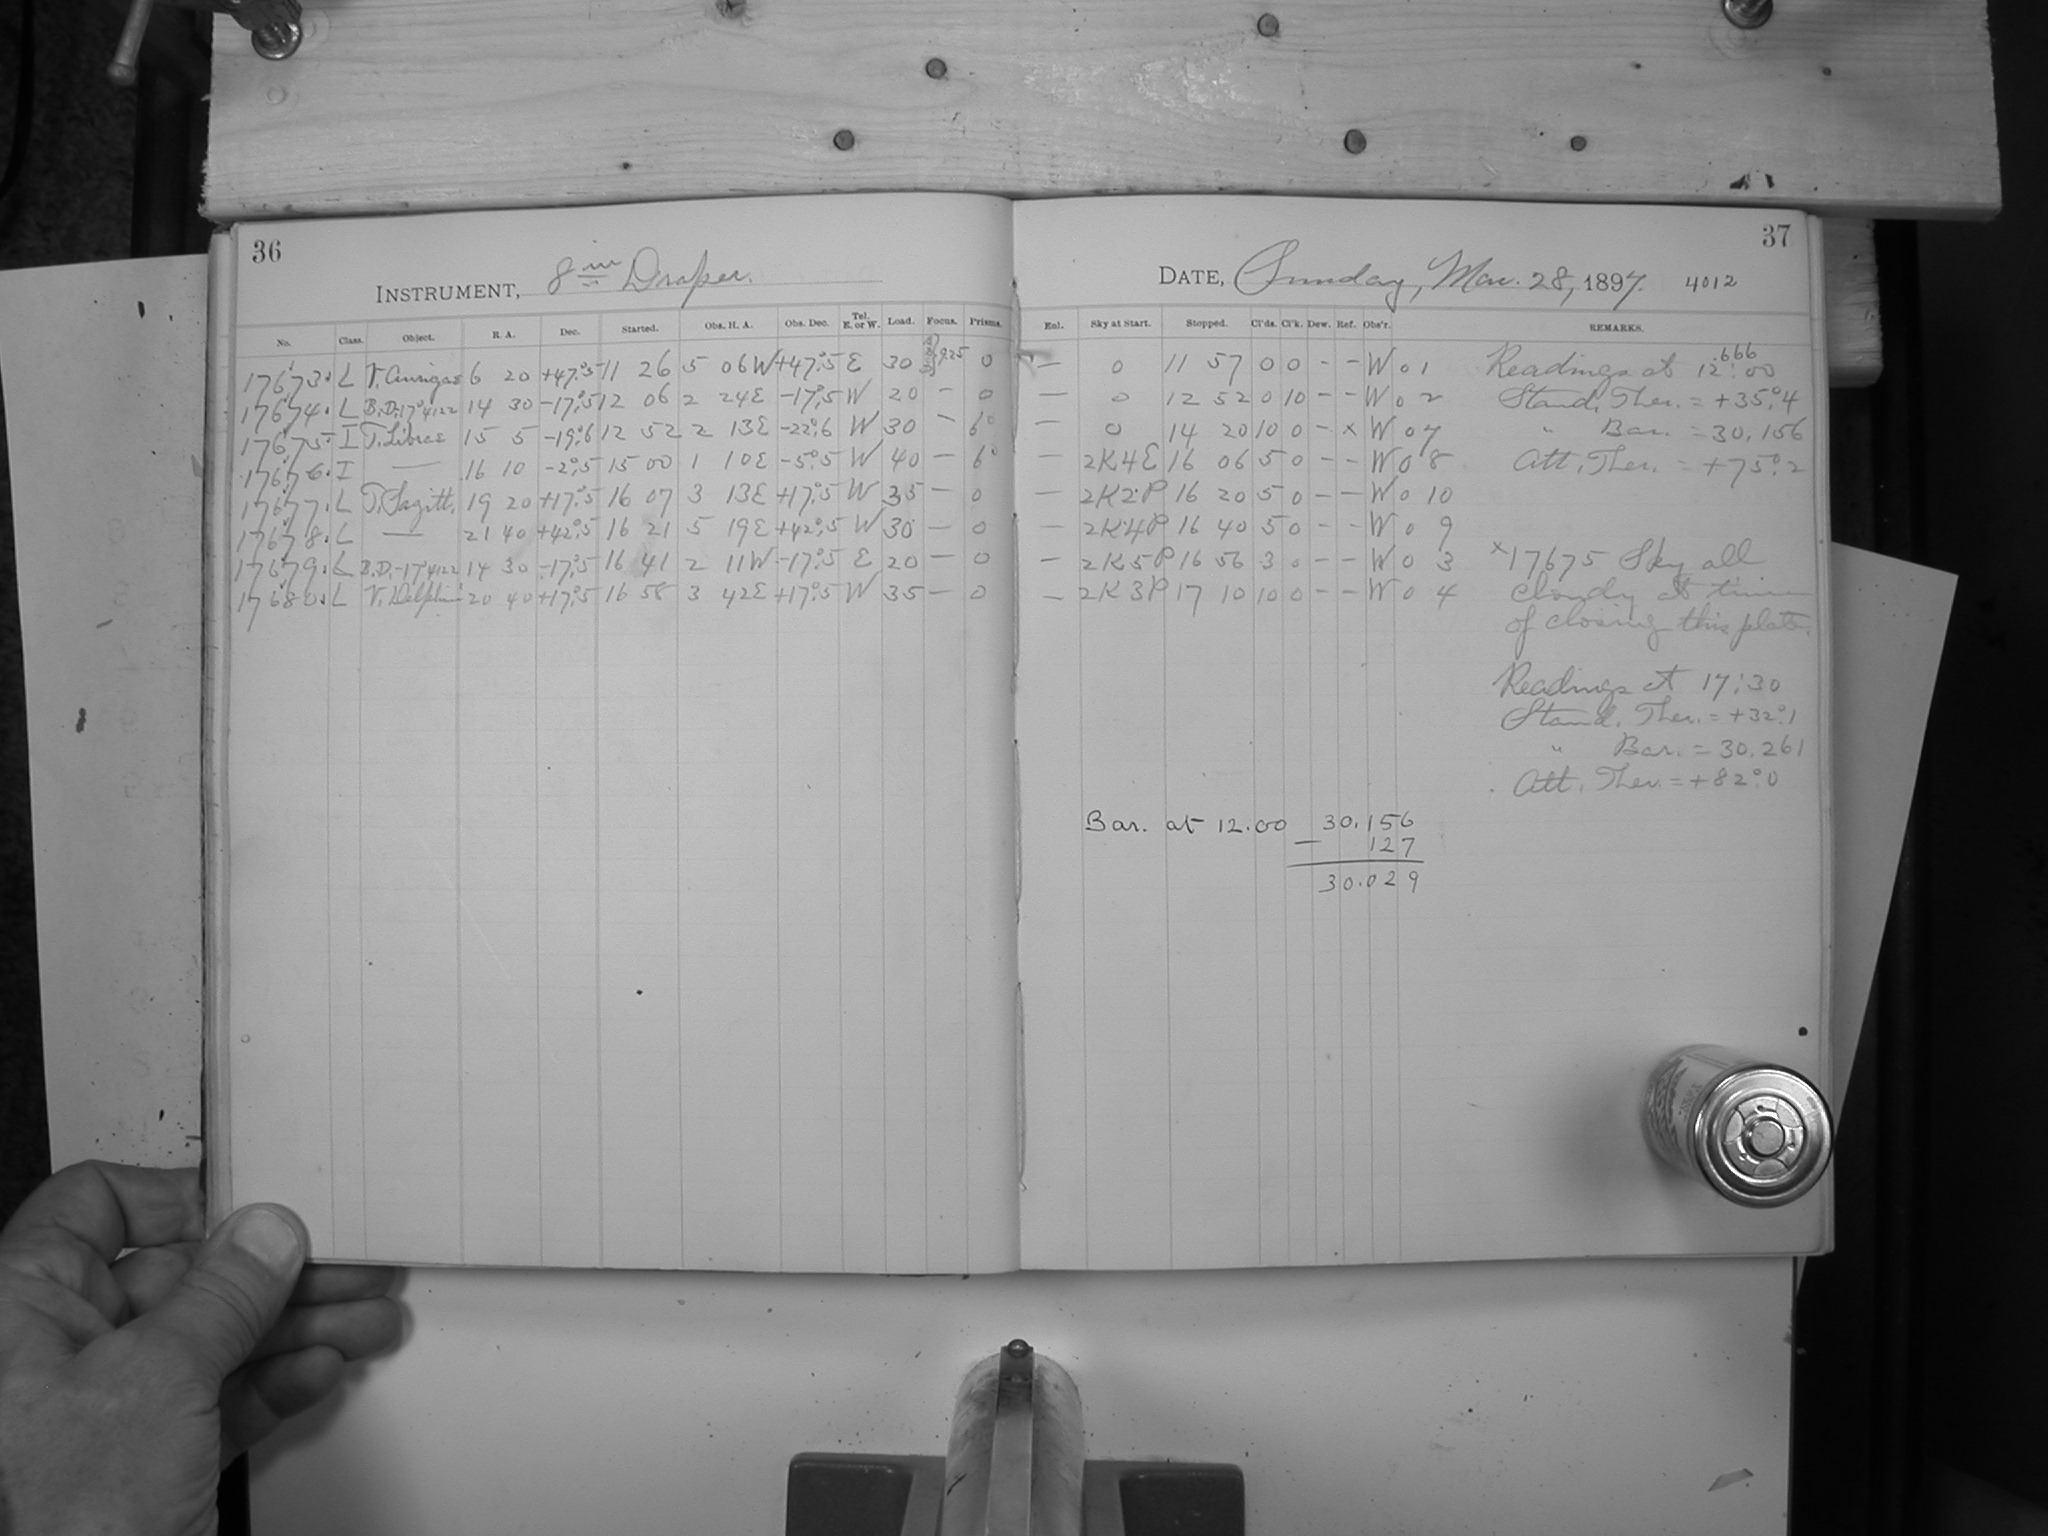 36
INSTRUMENT, 8 in Draper.
No. Class. Object. R. A. Dec. Started. Obs. H. A. Obs. Dec. Tel. E. or W. Load. Focus. Prisms.
17673. L V. Aurigae 6 20 +47°.5 11 26 5 06W +47°.5 E 30 9.25 0
17674. L B.D.-17°4122 14 30 -17°.5 12 06 2 24E -17°.5 W 20 — 0
17675. I T. Librae 15 5 -19°.6 12 52 2 13E -22°.6 W 30 — 6°
17676. I — 16 10 -2°.5 15 00 1 10E -5°.5 W 40 — 6°
17677. L T. Sagitt. 19 20 +17°.5 16 07 3 13E +17°.5 W 35 — 0
17678. L — 21 40 +42°.5 16 21 5 19E +42°.5 W 30 — 0
17679. L B.D.-17°4122 14 30 -17°.5 16 41 2 11W -17°.5 E 20 — 0
17680. L V. Delphini 20 40 +17°.5 16 58 3 42E +17°.5 W 35 — 0
37
DATE, Sunday, Mar. 28, 1897. 4012
Enl. Sky at Start. Stopped. Cl'ds. Cl'k. Dew. Ref. Obs'r. REMARKS.
— 0 11 57 0 0 - - W 0 1
— 0 12 52 0 10 - - W 0 2
— 0 14 20 10 0 - x W 0 7
— 2K4E 16 06 5 0 - - W 0 8
— 2K2P 16 20 5 0 - - W 0 10
— 2K4P 16 40 5 0 - - W 0 9
— 2K5P 16 56 3 0 - - W 0 3
— 2K3P 17 10 10 0 - - W 0 4
.666
Readings at 12:00
Stand. Ther. = +35°.4
" Bar. = 30.156
Att. Ther. = +75°.2
x17675 Sky all
cloudy at time
of closing this plate.
Readings at 17:30
Stand. Ther. = +32°.1
" Bar. = 30.261
Att. Ther. = +82°.0
Bar. at 12.00 30.156
— 127
30.029